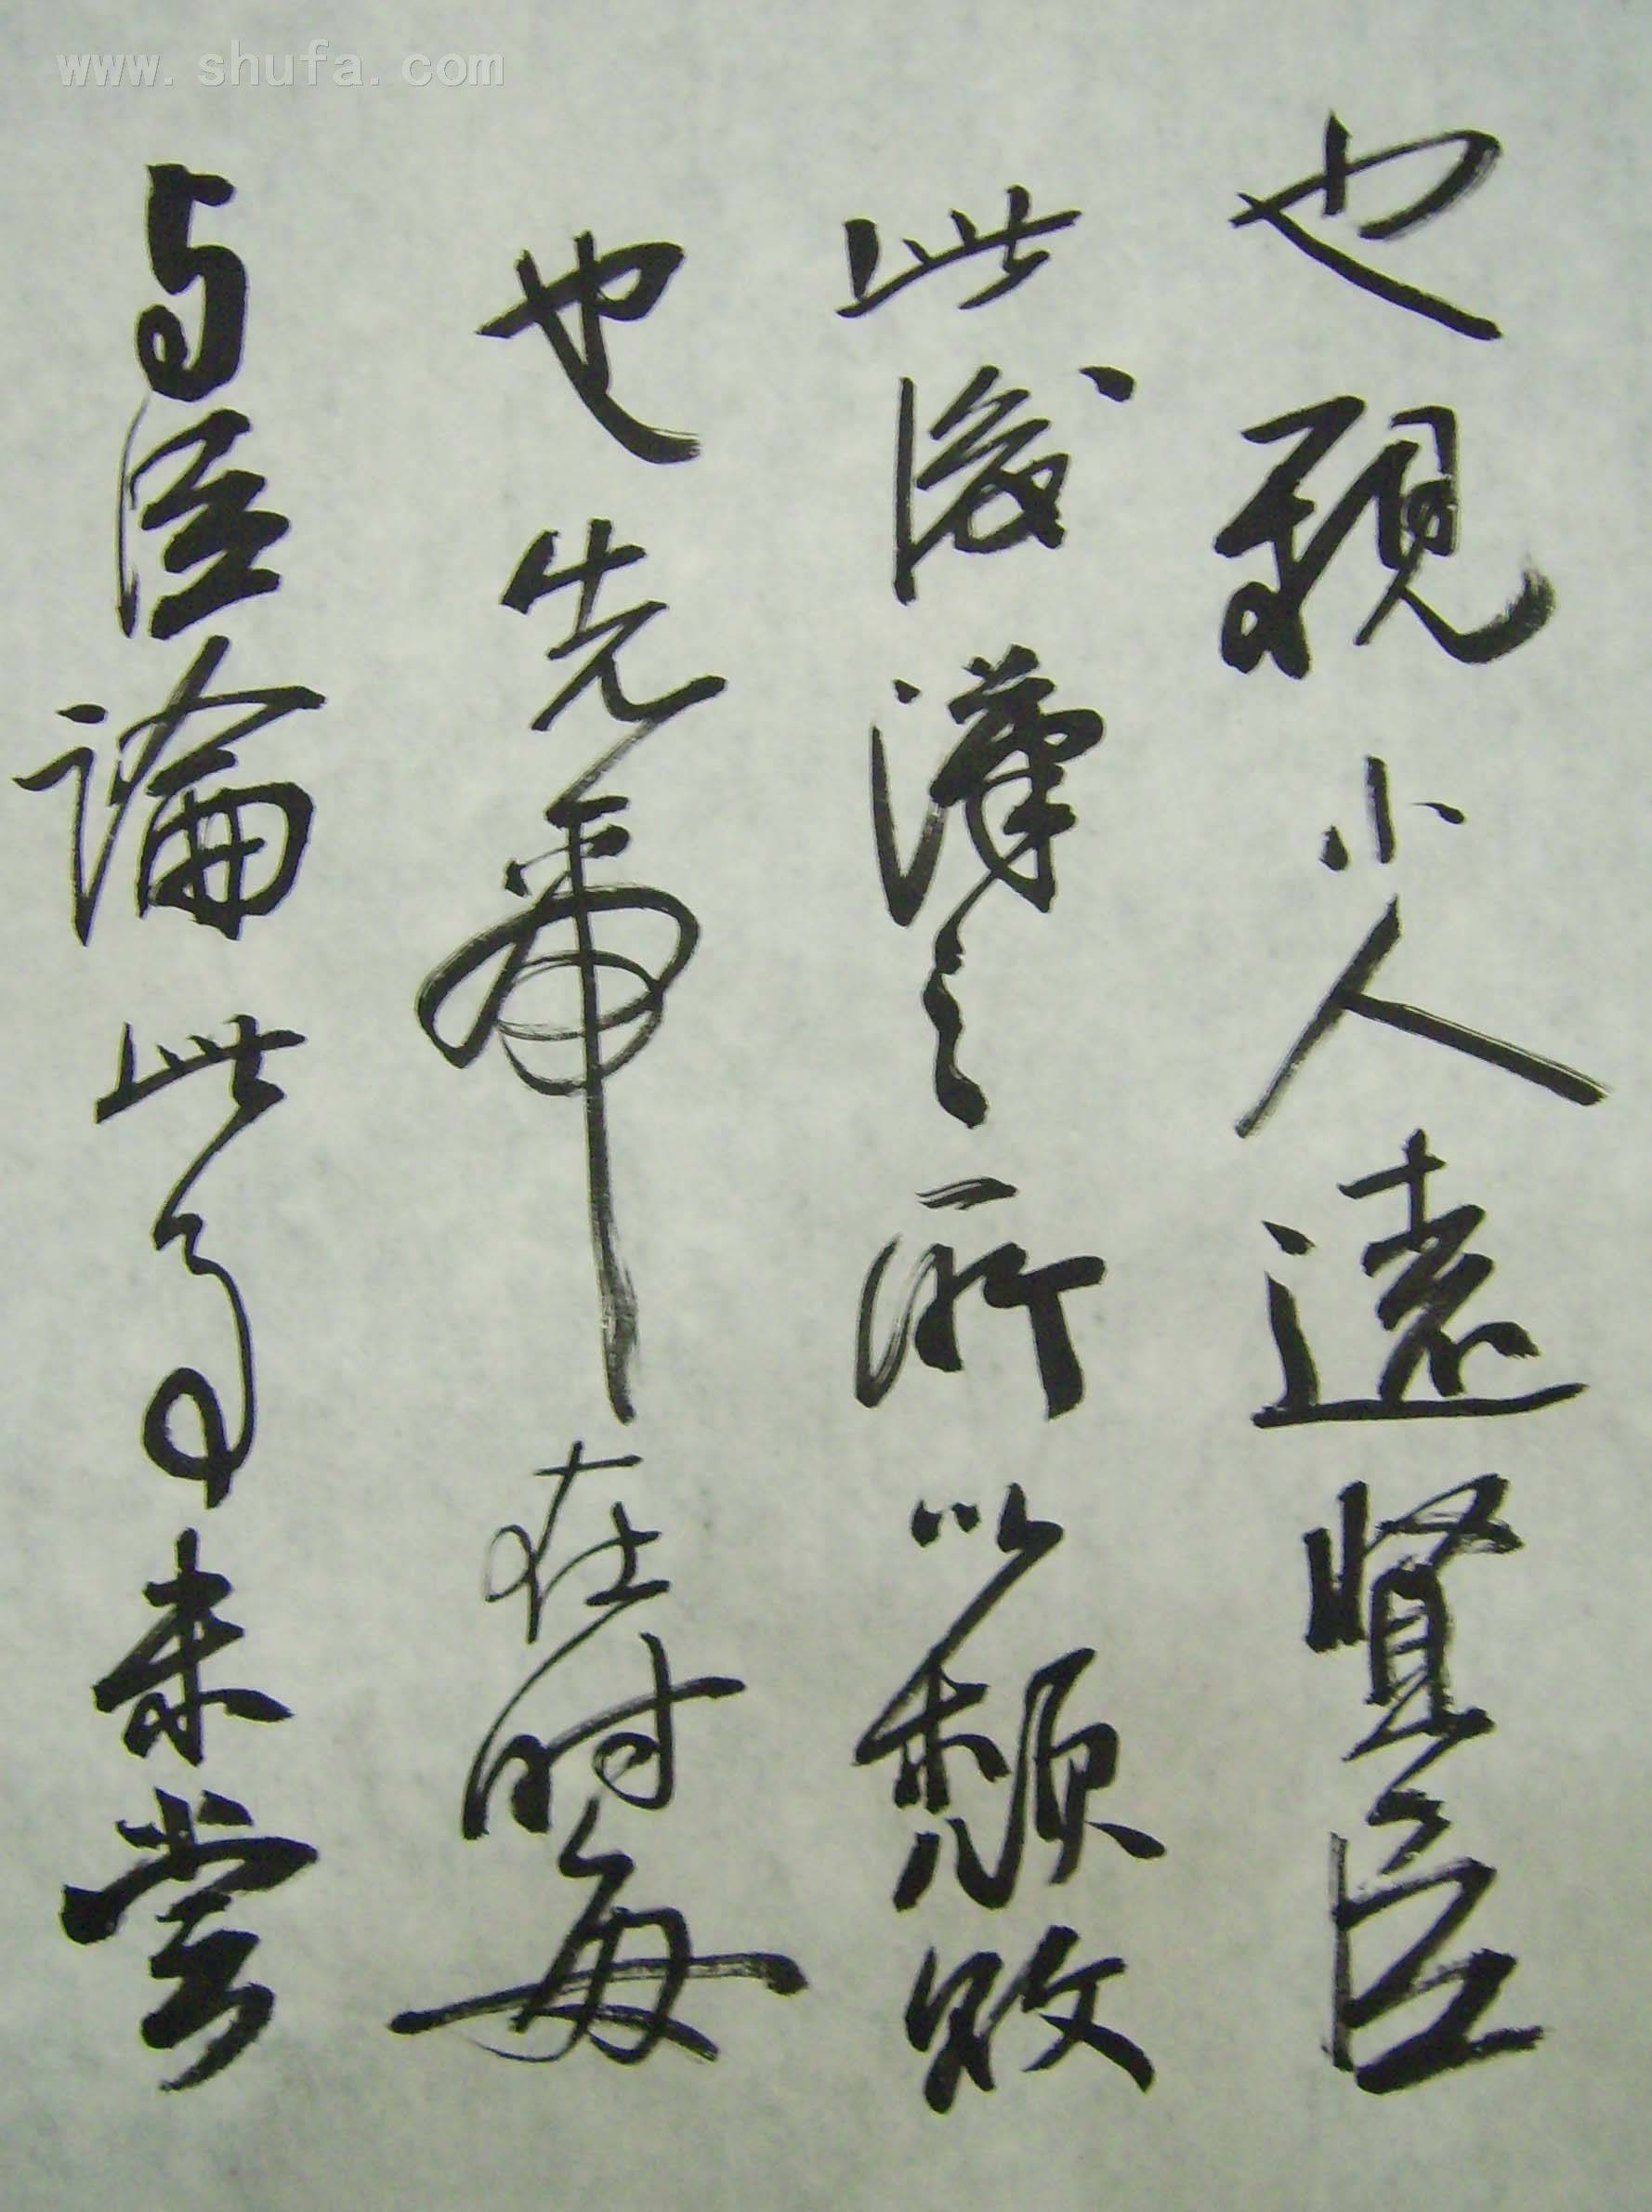 www.shufa.com
也親小人遠賢臣
此後漢之所以頹敗
也先帝在時每
与臣論此事未嘗